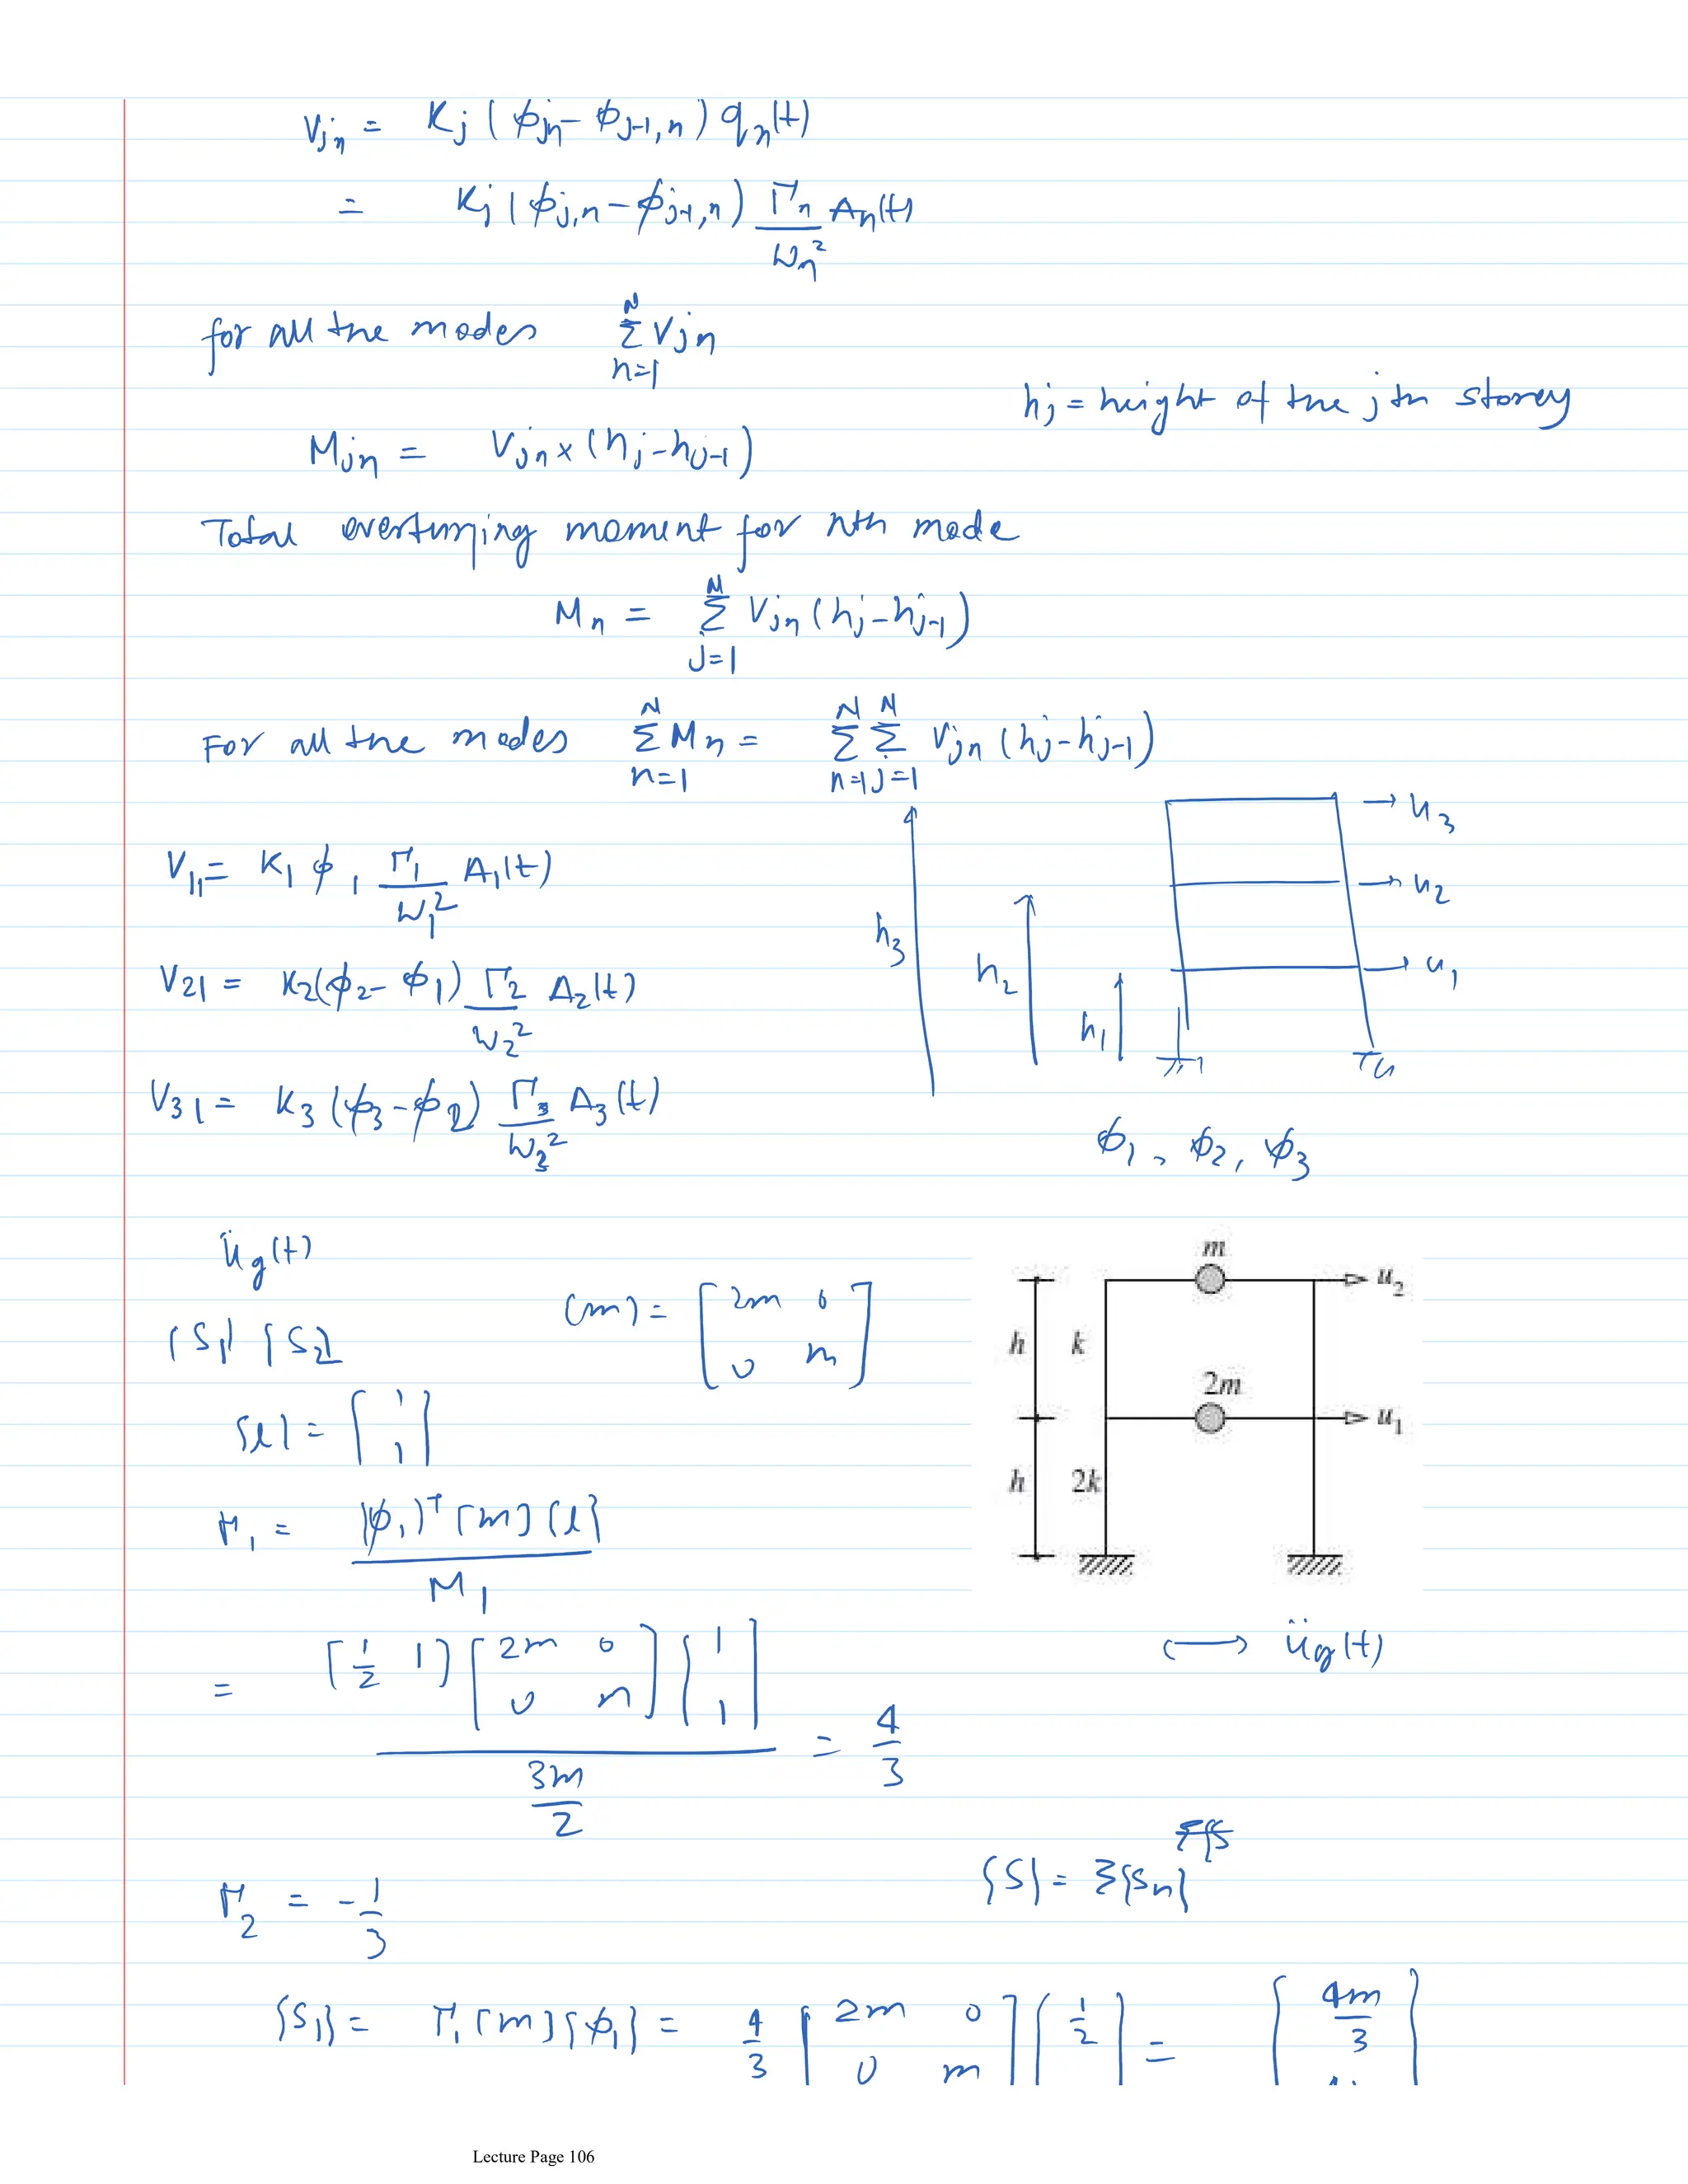 V_jn = K_j (ϕ_jn - ϕ_j-1,n) q_n(t)
= K_j (ϕ_j,n - ϕ_j-1,n) Γ_n/ω_n² A_n(t)
for all the modes Σ_{n=1}^{N} V_jn
h_j = height of the jth storey
M_jn = V_jn × (h_j - h_j-1)
Total overturning moment for nth mode
M_n = Σ_{j=1}^{N} V_jn (h_j - h_j-1)
For all the modes Σ_{n=1}^{N} M_n = Σ_{n=1}^{N} Σ_{j=1}^{N} V_jn (h_j - h_j-1)
V_11 = K_1 ϕ_1 Γ_1/ω_1² A_1(t)
V_21 = K_2(ϕ_2 - ϕ_1) Γ_2/ω_2² A_2(t)
V_31 = K_3 (ϕ_3 - ϕ_2) Γ_3/ω_3² A_3(t)
h_3
h_2
h_1
→ u_3
→ u_2
→ u_1
ϕ_1, ϕ_2, ϕ_3
ü_g(t)
{S_1} {S_2}
[m] = [2m 0; 0 m]
{l} = {1; 1}
Γ_1 = {ϕ_1}^T [m] {l} / M_1
= [1/2 1] [2m 0; 0 m] {1; 1} / (3m/2) = 4/3
m
u_2
h k
2m
u_1
h 2k
↔ ü_g(t)
Γ_2 = -1/3
{S} = Σ{S_n}
{S_1} = Γ_1 [m] {ϕ_1} = 4/3 [2m 0; 0 m] {1/2 = {4m/3
Lecture Page 106